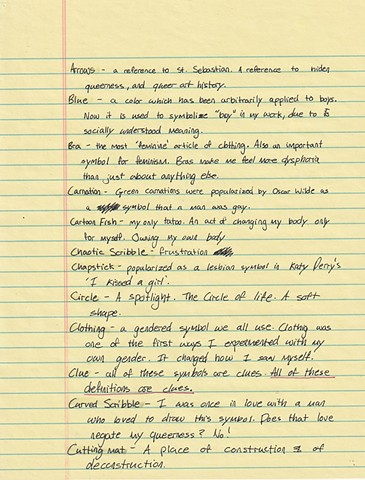 Arrows - a reference to St. Sebastian. A reference to hidden
queerness, and queer art history.
Blue - a color which has been arbitrarily applied to boys.
Now it is used to symbolize "boy" in my work, due to its
socially understood meaning.
Bra - the most "feminine" article of clothing. Also an important
symbol for feminism. Bras make me feel more dysphoria
than just about anything else.
Carnation - Green carnations were popularized by Oscar Wilde as
a symbol that a man was gay.
Cartoon Fish - my only tatoo. An act of changing my body only
for myself. Owning my own body
Chaotic Scribble - frustration
Chapstick - popularized as a lesbian symbol in Katy Perry's
'I kissed a girl'.
Circle - A spotlight. The Circle of life. A soft
shape.
Clothing - a gendered symbol we all use. Clothing was
one of the first ways I experimented with my
own gender. It changed how I saw myself.
Clue - all of these symbols are clues. All of these
definitions are clues.
Curved Scribble - I was once in love with a man
who loved to draw this symbol. Does that love
negate my queerness? No!
Cutting mat - A place of construction & of
deconstruction.